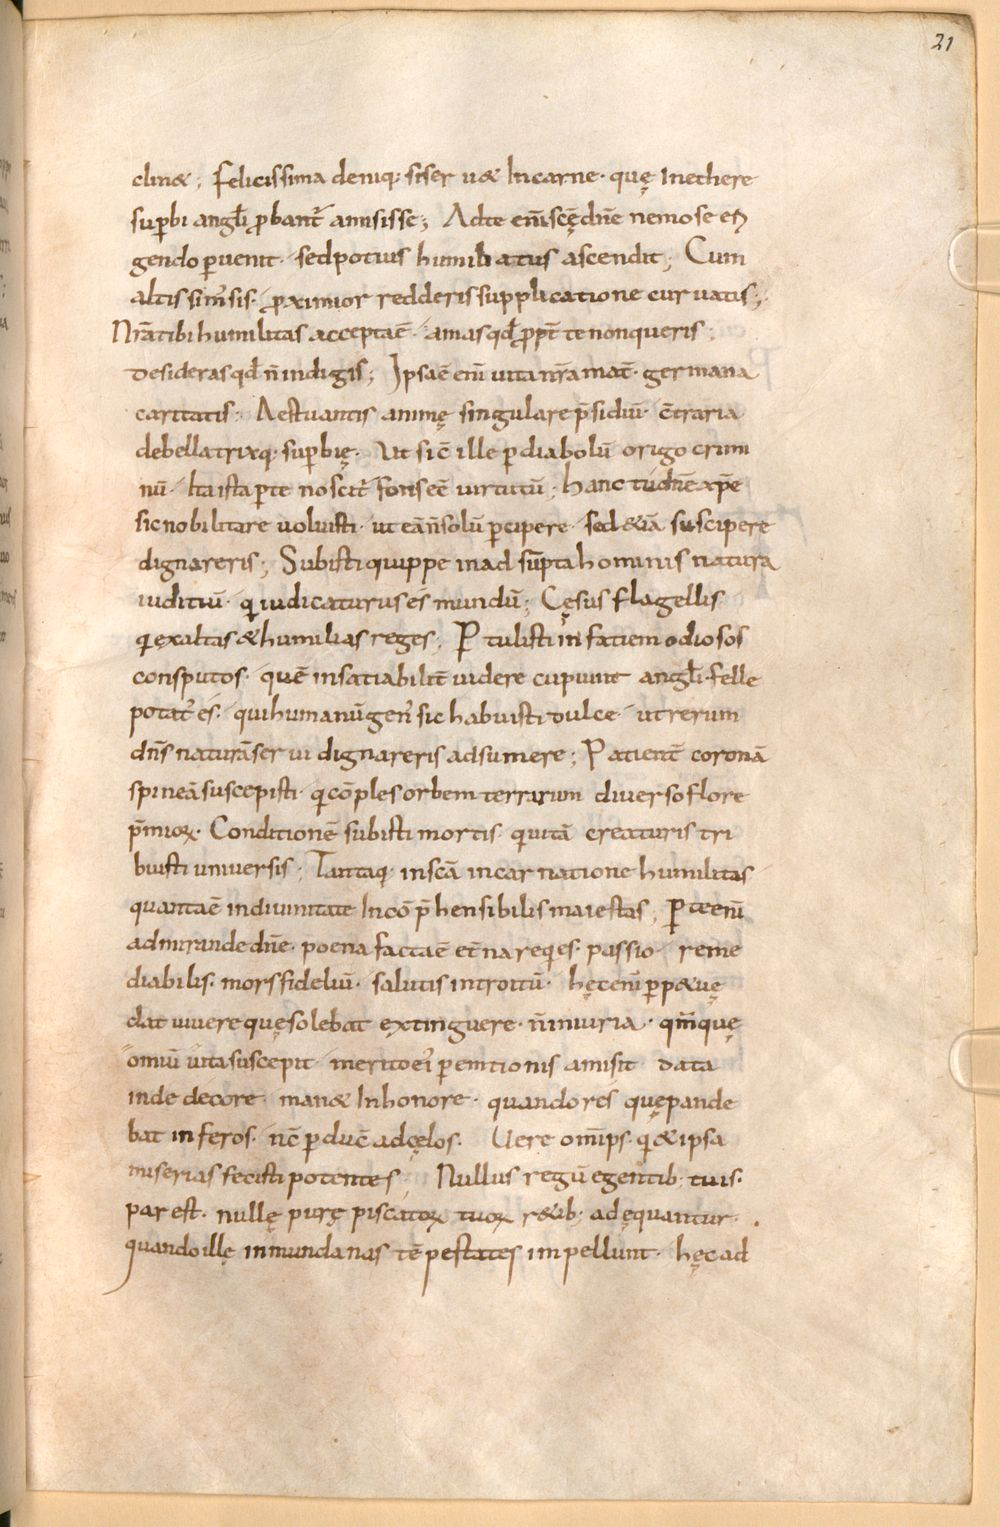 21
clin&; Felicissima deniq· si ser u& In carne· quę In ethere
sup̄bi angl̄i ꝓbant̄ amisisse; Ad te eni̅ scę̄ dn̄e nemo se eri
gendo ꝑuenit· sed potius humiliatus ascendit; Cum
altissim̄ sis· ꝓximior redderis supplicatione curuatis;
Nr̄a tibi humilitas accepta ē· amas qd̄ ꝓpt̄ te non queris·
desideras qd̄ n̄ indigis; Ipsa ē eni̅ uita nr̄a mat̄· germana
caritatis· Aestuantis animę singulare p̄sidiū· c̄traria
debellatrixq· sup̄bię· Ut sic̄ ille ꝑ diabolū origo crimi
nū· Ita ista ꝑ te noscit̄ fons eē uirtutū; hanc tu dn̄e xp̄e
sic nobilitare uoluisti· ut eā n̄ solū ꝑcipere· sed &iā suscipere
dignareris; Subisti quippe in adsūpta hominis natura
iuditiū· qi iudicaturus es mundū; Cęsus flagellis
qi exaltas & humilias reges; Ptulisti in fatiem odiosos
consputos· quē insatiabilit̄ uidere cupiunt angl̄i· felle
potat̄ es· qui humanū gen̄ sic habuisti dulce· ut rerum
dn̄s naturā serui dignareris adsumere; Patient̄ coronā
spineā suscepisti· qi cōples orbem terrarum diuerso flore
p̄mioꝝ· Conditionē subisti mortis· qi uitā creaturis tri
buisti uniuersis; Tantaq· in scā incarnatione humilitas
quanta ē in diuinitate Incōp̄hensibilis maiestas; P te eni̅
admirande dn̄e· poena facta ē et̄na reqes· passio reme
diabilis· mors fideliū· salutis introitū· hęc eni̅ ꝑp&uę
dat uiuere quę solebat extinguere· n̄ iniuria· qm̄ quę
omiū uita suscepit merito ei ꝑemtionis amisit data
inde decore man& In honore· quando res quę pande
bat inferos· nc̄ ꝑduc̄ ad cęlos· Uere omīps· qi & ipsa
miserias fecisti potentes; Nullus regū egentib; tuis·
par est· nullę purę piscatoꝝ tuoꝝ r&ib; adęquantur·
quando illę in mundanas tēpestates impellunt· hęc ad